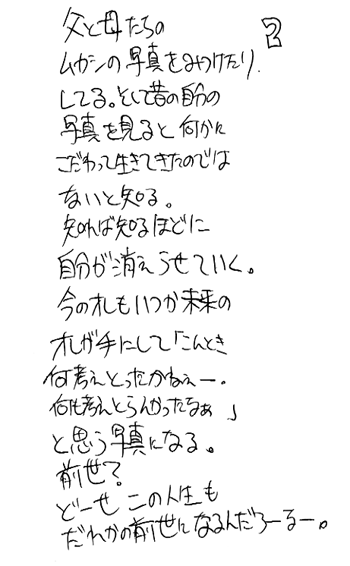 父と母たちの
2
ムカシの写真をみつけたり、
してる。そして昔の自分の
写真を見ると何かに
こだわって生きてきたのでは
ないと知る。
知れば知るほどに
自分が消えうせていく。
今のオレもいつか未来の
オレが手にして「こんとき
何考えとったかねぇー。
何も考えとらんかったなぁ」
と思う写真になる。
前世？
どーせこの人生も
だれかの前世になるんだろーるー。